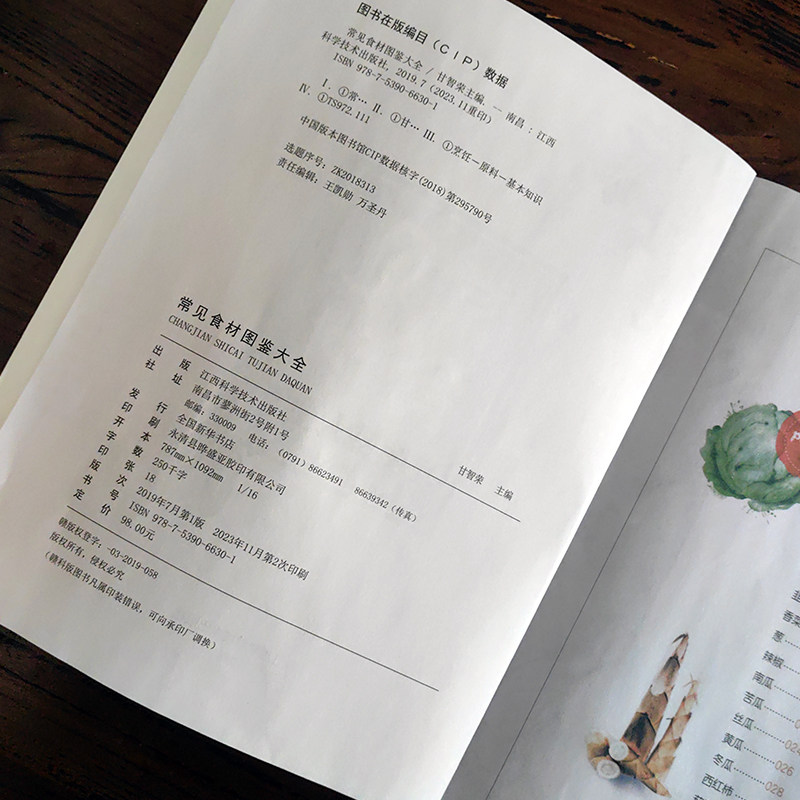 图书在版编目（CIP）数据
常见食材图鉴大全 / 甘智荣主编. — 南昌：江西
科学技术出版社，2019.7（2023.11重印）
ISBN 978-7-5390-6630-1
Ⅰ. ①常… Ⅱ. ①甘… Ⅲ. ①烹饪－原料－基本知识
Ⅳ. ①TS972.111
中国版本图书馆CIP数据核字(2018)第295790号
选题序号：ZK2018313
责任编辑：王凯勋 万圣丹
常见食材图鉴大全
CHANGJIAN SHICAI TUJIAN DAQUAN
甘智荣 主编
出版 江西科学技术出版社
社址 南昌市蓼洲街2号附1号
邮编：330009 电话：(0791) 86623491 86639342（传真）
发行 全国新华书店
印刷 永清县晔盛亚胶印有限公司
开本 787mm×1092mm 1/16
字数 250千字
印张 18
版次 2019年7月第1版 2023年11月第2次印刷
书号 ISBN 978-7-5390-6630-1
定价 98.00元
赣版权登字：-03-2019-058
版权所有，侵权必究
（赣科版图书凡属印装错误，可向承印厂调换）
韭
香菜
葱
辣椒
南瓜
苦瓜
丝瓜
黄瓜 026
冬瓜
西红柿 028